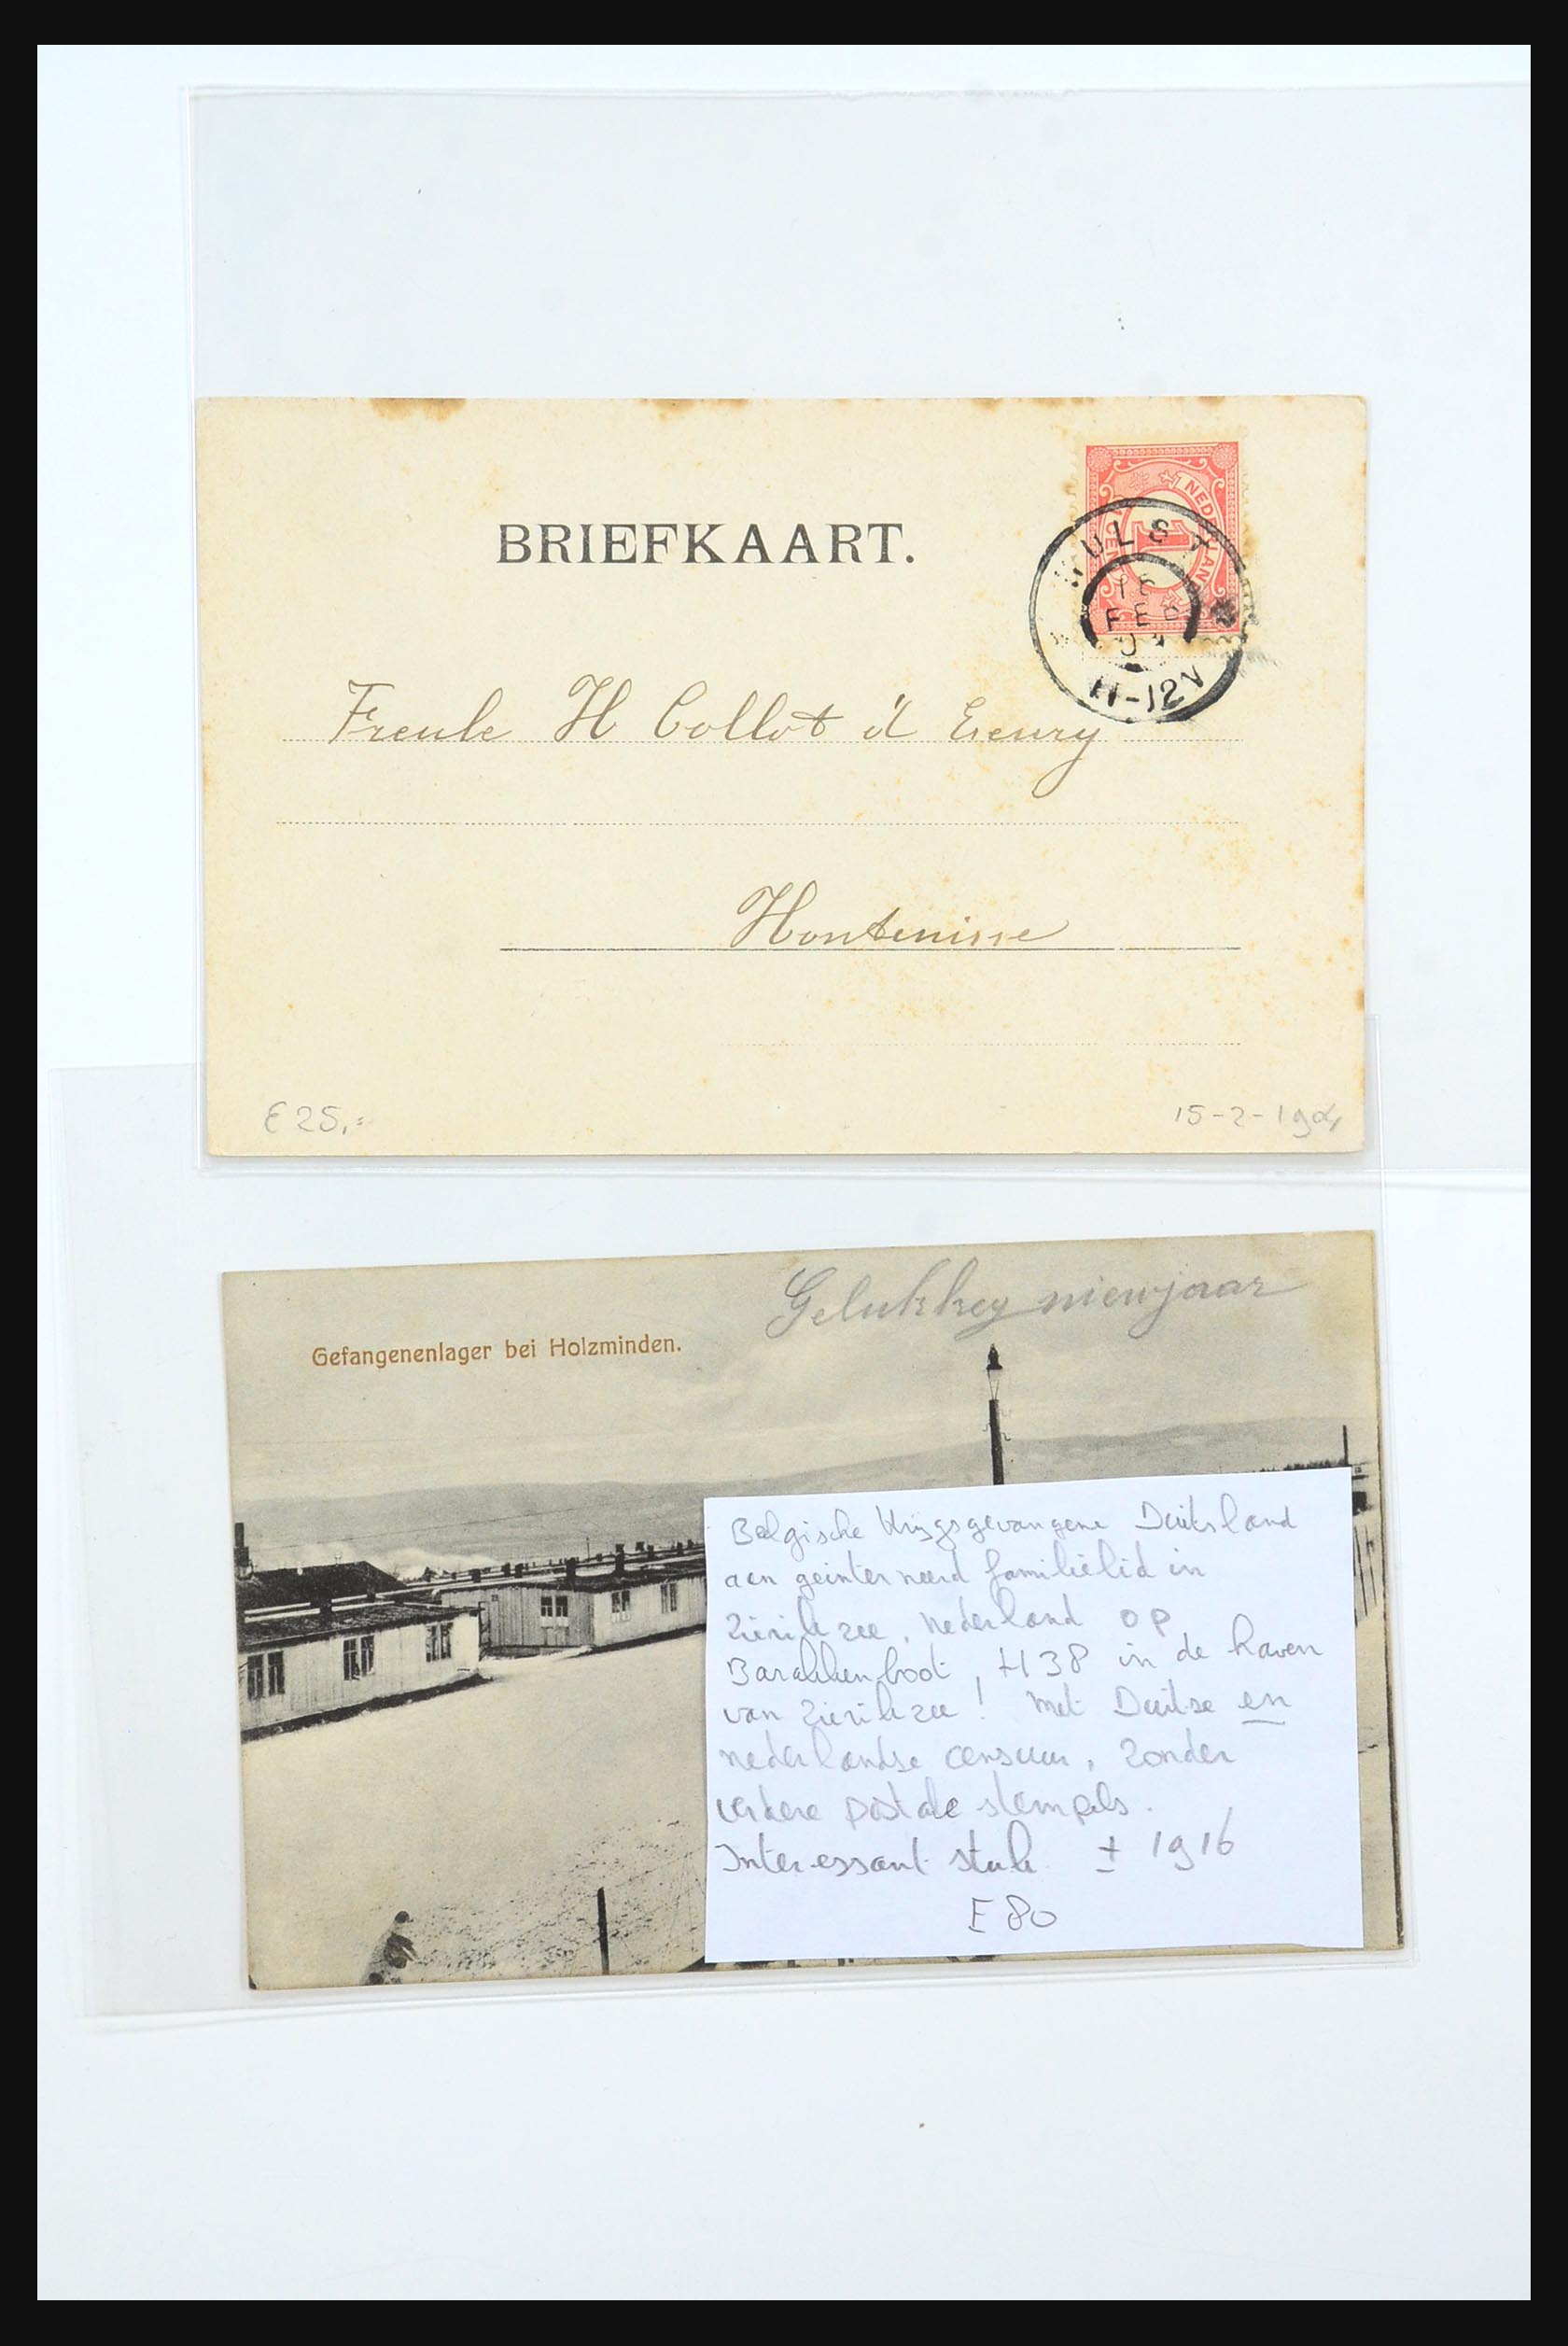 BRIEFKAART.
NEDERLAND
1
CENT
HULST
FEB
11-12V
Freule H Collot d' Escury
Hontenisse
€ 25,=
15-2-1904
Gelukkeg nieuwjaar
Gefangenenlager bei Holzminden.
Belgische Krijgsgevangene Duitsland
aan geinterneerd familielid in
Zierikzee, Nederland op
Barakkenboot, H38 in de haven
van Zierikzee! Met Duitse en
nederlandse censuur, zonder
verdere postale stempels.
Interessant stuk ± 1916
E 80